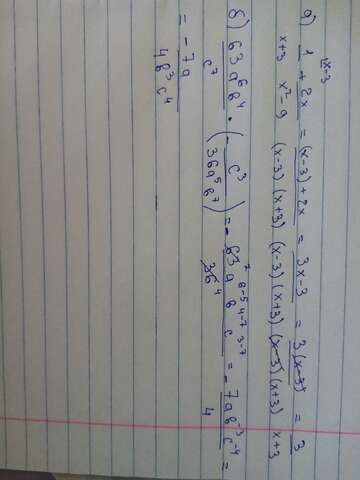 |x-3
a) 1/(x+3) + 2x/(x²-9) = ((x-3)+2x)/((x-3)(x+3)) = (3x-3)/((x-3)(x+3)) = 3(x-3)/((x-3)(x+3)) = 3/(x+3)
б) 63a⁶b⁴/c⁷ · (-c³/(36a⁵b⁷)) = -63⁷a⁶⁻⁵b⁴⁻⁷c³⁻⁷/36⁴ = -7ab⁻³c⁻⁴/4 =
= -7a/(4b³c⁴)